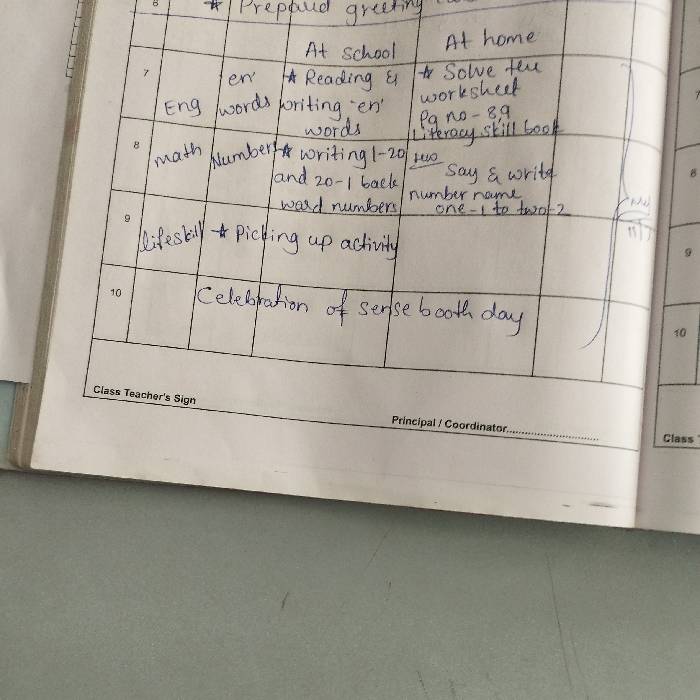 6 * Prepaud greeting
At school At home
7 Eng en' words * Reading & writing 'en' words * Solve the worksheet Pg no - 8,9 Literacy skill book
8 math Numbers * writing 1-20 and 20-1 back ward numbers Say & write number name one-1 to two-2
9 lifeskill * Picking up activity
10 Celebration of sense booth day
Class Teacher's Sign
Principal / Coordinator
7
8
9
10
Class